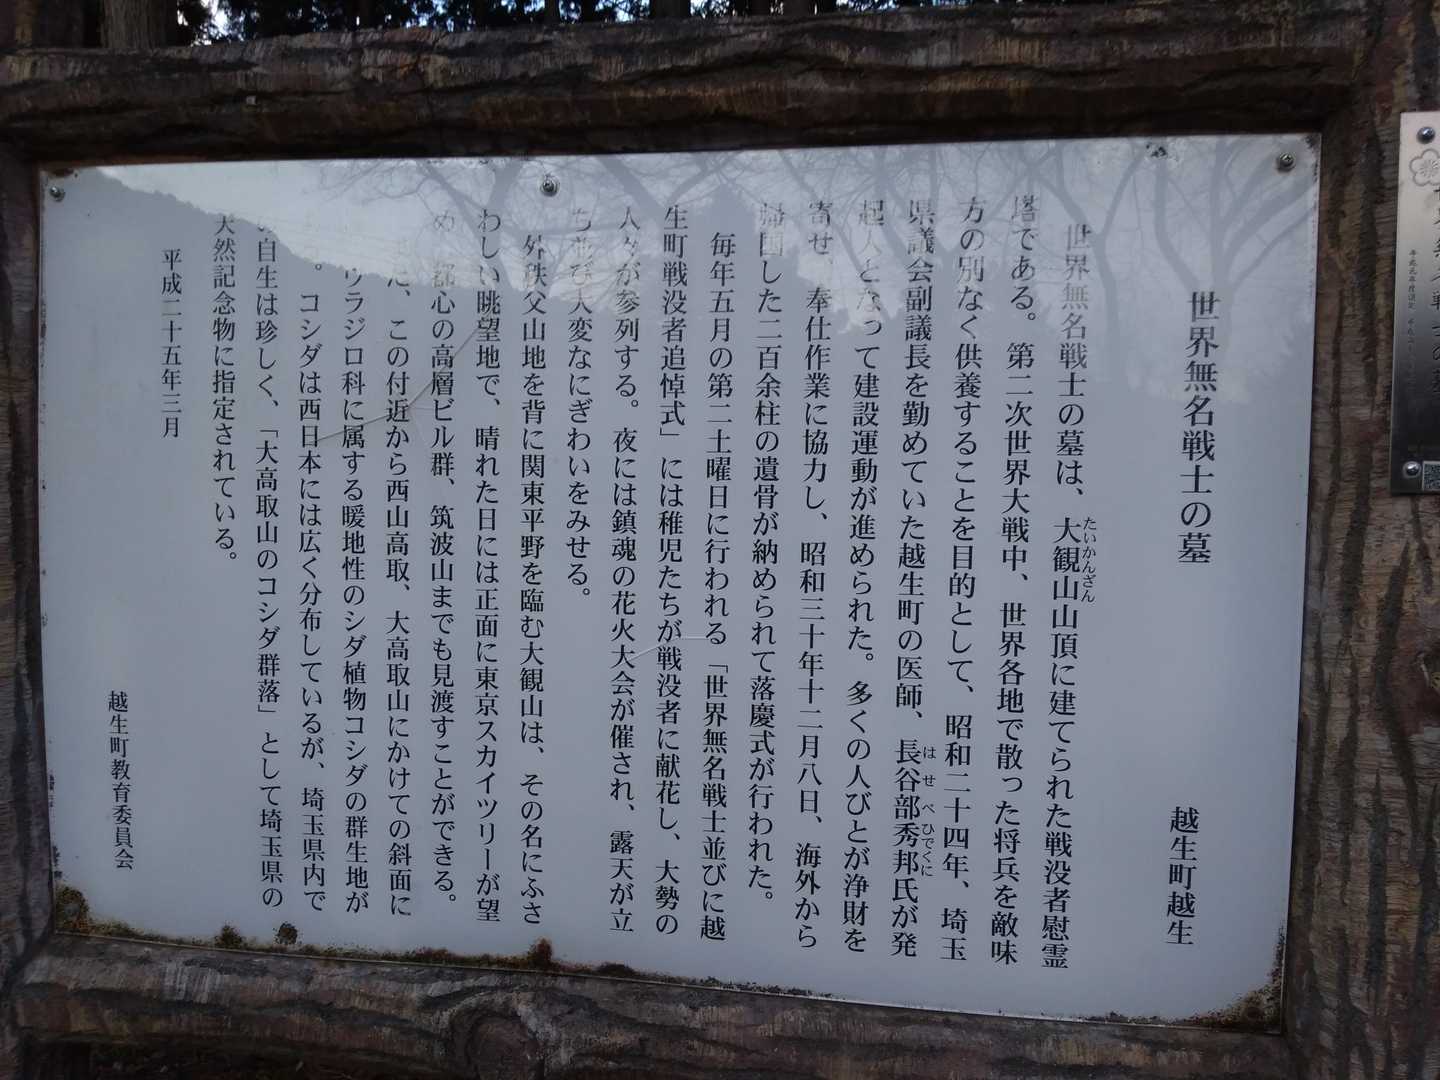 世界無名戦士の墓
越生町越生
世界無名戦士の墓は、大観山山頂に建てられた戦没者慰霊
たいかんざん
塔である。第二次世界大戦中、世界各地で散った将兵を敵味
方の別なく供養することを目的として、昭和二十四年、埼玉
県議会副議長を勤めていた越生町の医師、長谷部秀邦氏が発
はせべひでくに
起人となって建設運動が進められた。多くの人びとが浄財を
寄せ、奉仕作業に協力し、昭和三十年十二月八日、海外から
帰国した二百余柱の遺骨が納められて落慶式が行われた。
毎年五月の第二土曜日に行われる「世界無名戦士並びに越
生町戦没者追悼式」には稚児たちが戦没者に献花し、大勢の
人々が参列する。夜には鎮魂の花火大会が催され、露天が立
ち並び大変なにぎわいをみせる。
外秩父山地を背に関東平野を臨む大観山は、その名にふさ
わしい眺望地で、晴れた日には正面に東京スカイツリーが望
め、都心の高層ビル群、筑波山までも見渡すことができる。
、この付近から西山高取、大高取山にかけての斜面に
ウラジロ科に属する暖地性のシダ植物コシダの群生地が
。コシダは西日本には広く分布しているが、埼玉県内で
自生は珍しく、「大高取山のコシダ群落」として埼玉県の
天然記念物に指定されている。
平成二十五年三月
越生町教育委員会